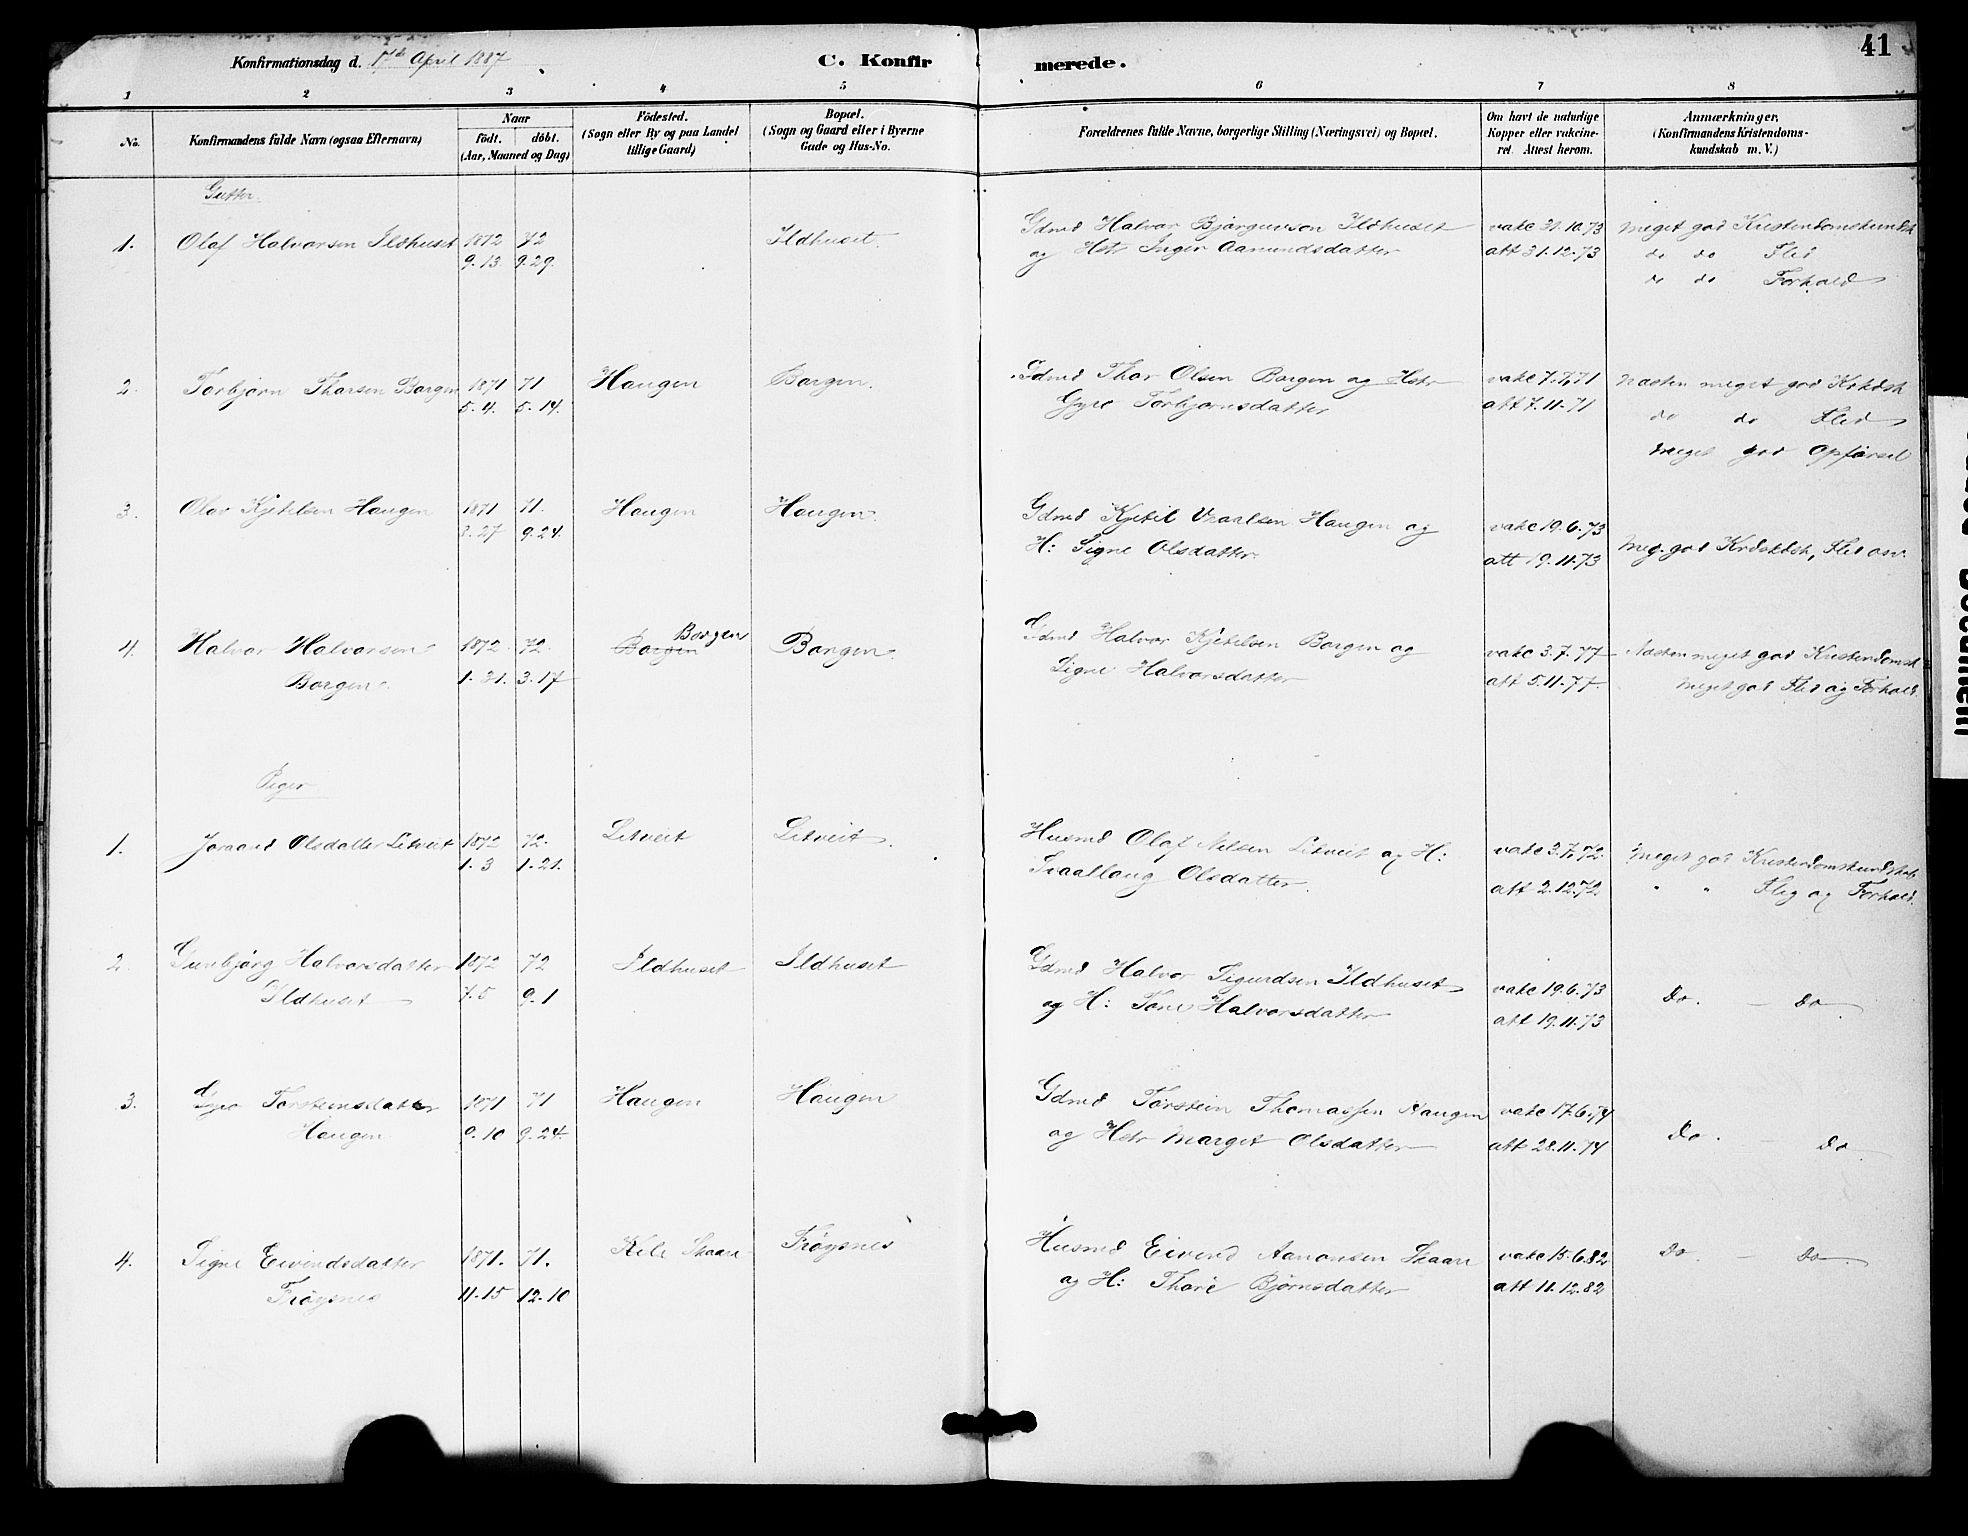 41
Konfirmationsdag d. 17de April 1887
C. Konfirmerede.
1 2 3 4 5 6 7 8
No.
Konfirmandens fulde Navn (ogsaa Efternavn)
Naar
födt. döbt.
(Aar, Maaned og Dag)
Födested.
(Sogn eller By og paa Landet
tillige Gaard)
Bopæl.
(Sogn og Gaard eller i Byerne
Gade og Hus-No.
Forældrenes fulde Navne, borgerlige Stilling (Næringsvei) og Bopæl.
Om havt de naturlige
Kopper eller vakcine-
ret. Attest herom.
Anmærkninger,
(Konfirmandens Kristendoms-
kundskab m. V.)
Gutter.
1. Olaf Halvorsen Ildhuset 1872 72 Ildhuset. Gdmd Halvor Bjørgumson Ildhuset vakc 21.10.73 Meget god Kristendomskundsk
9.13. 9.29. og Hstr Inger Aamundsdatter att 31.12.73 do do Flid
do do Forhold
2. Torbjørn Thorsen Borgen 1871 71 Haugen Borgen. Gdmd Thor Olsen Borgen og Hstr vakc 7.7.71 Næsten meget god Krkdsk
5.4. 5.14. Gyro Torbjørnsdatter att 7.11.71 do do Flid
Meget god Opførsel
3. Olav Kjetelsen Haugen 1871 71. Haugen Haugen. Gdmd Kjetil Vraalsen Haugen og vakc 19.6.73
27 9.24. H: Signe Olsdatter. att 19.11.73 Meg. god Krdskdsk, Flid osv.
4. Halvor Halvorsen 1872. 72. Borgen Borgen Borgen. Gdmd Halvor Kjetelsen Borgen og vakc 3.7.77 Næsten meget god Kristendomsk
Borgen. 1.31. 3.17 Signe Halvorsdatter att 5.11.77. Meget god Flid og Forhold.
Piger
1. Joraand Olsdatter Litveit 1872 72. Litveit Litveit. Husmd Olaf Nilsen Litveit og H: vakc 3.7.72. Meget god Kristendomskundskab
1.3 1.21. Svaallaug Olsdatter. att 2.12.72 " " Flig og Forhold.
2. Gunbjørg Halvorsdatter 1872 72 Ildhuset Ildhuset Gdmd Halvor Sigurdsen Ildhuset vakc 19.6.73
Ildhuset 7.5 9.1 og H: Tone Halvorsdatter att 19.11.73 Do. — Do
3. Gyro Torsteinsdatter 1871 71 Haugen Haugen Gdmd Torstein Thomassen Haugen vakc 17.6.74
Haugen 9.10 9.24. og Hstr Marget Olsdatter att 28.11.74 Do. Do
4. Signe Eivindsdatter 1871. 71. Kile Skaar Frøysnes Husmd Eivind Aanonsen Skaar vakc 15.6.82 Do. — Do
Frøysnes 11.15 12.10 og H: Thore Bjørnsdatter att 11.12.82